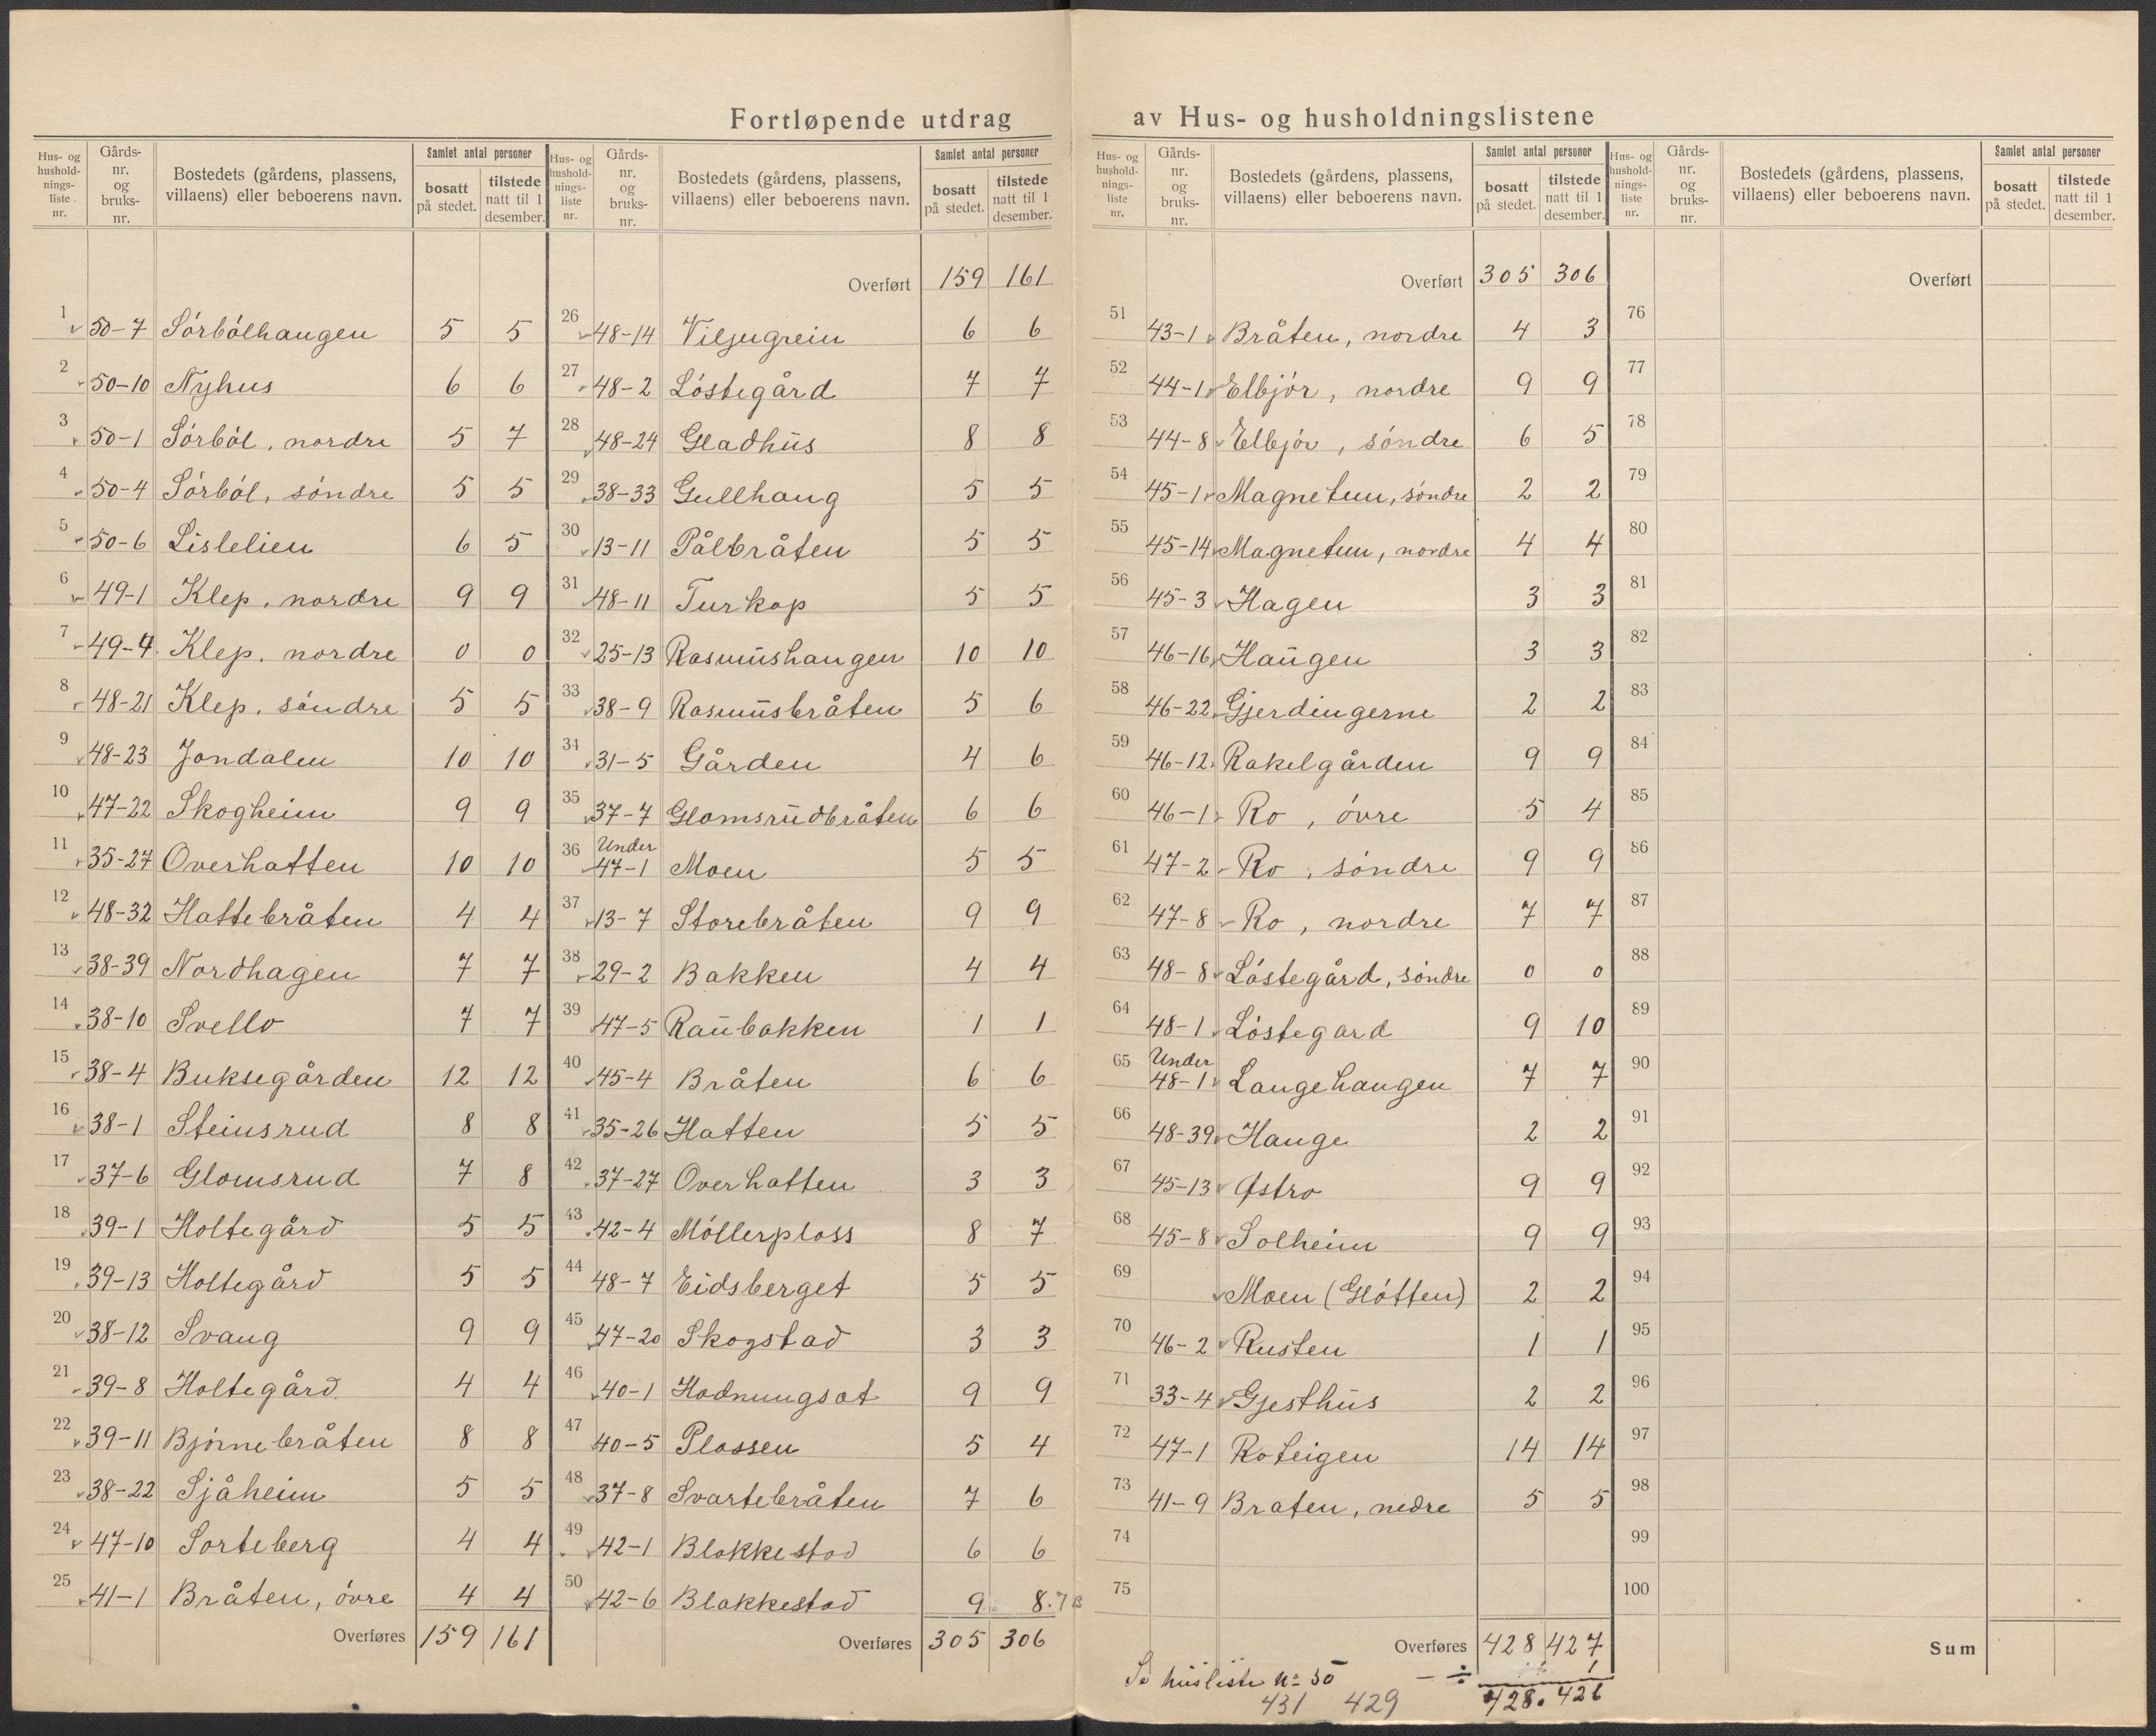 Fortløpende utdrag av Hus- og husholdningslistene
Hus- og husholdnings-liste nr. | Gårds-nr. og bruks-nr. | Bostedets (gårdens, plassens, villaens) eller beboerens navn. | Samlet antal personer bosatt på stedet. | tilstede natt til 1 desember.
1 50-7 Sórbólhaugen 5 5
2 50-10 Nyhus 6 6
3 50-1 Sórból, nordre 5 7
4 50-4 Sórból, sóndre 5 5
5 50-6 Lislelien 6 5
6 49-1 Klep, nordre 9 9
7 49-4 Klep, nordre 0 0
8 48-21 Klep, sóndre 5 5
9 48-23 Jondalen 10 10
10 47-22 Skogheim 9 9
11 35-27 Overhatten 10 10
12 48-32 Hattebråten 4 4
13 38-39 Nordhagen 7 7
14 38-10 Svello 7 7
15 38-4 Buksegården 12 12
16 38-1 Steinsrud 8 8
17 37-6 Glomsrud 7 8
18 39-1 Holtegård 5 5
19 39-13 Holtegård 5 5
20 38-12 Svang 9 9
21 39-8 Holtegård 4 4
22 39-11 Bjórnebråten 8 8
23 38-22 Sjåheim 5 5
24 47-10 Sorteberg 4 4
25 41-1 Bråten, óvre 4 4
Overføres 159 161
Hus- og husholdnings-liste nr. | Gårds-nr. og bruks-nr. | Bostedets (gårdens, plassens, villaens) eller beboerens navn. | Samlet antal personer bosatt på stedet. | tilstede natt til 1 desember.
Overført 159 161
26 48-14 Viljugrein 6 6
27 48-2 Lóstegård 7 7
28 48-24 Gladhus 8 8
29 38-33 Gullhaug 5 5
30 13-11 Pålbråten 5 5
31 48-11 Turkop 5 5
32 25-13 Rasmushaugen 10 10
33 38-9 Rasmusbråten 5 6
34 31-5 Gården 4 6
35 37-7 Glomsrudbråten 6 6
36 Under 47-1 Moen 5 5
37 13-7 Storebråten 9 9
38 29-2 Bakken 4 4
39 47-5 Raubakken 1 1
40 45-4 Bråten 6 6
41 35-26 Hatten 5 5
42 37-27 Overhatten 3 3
43 42-4 Móllerplass 8 7
44 48-7 Eidsberget 5 5
45 47-20 Skogstad 3 3
46 40-1 Hadnungsat 9 9
47 40-5 Plassen 5 4
48 37-8 Svartebråten 7 6
49 42-1 Blakkestad 6 6
50 42-6 Blakkestad 9 8.7
Overføres 305 306
Hus- og husholdnings-liste nr. | Gårds-nr. og bruks-nr. | Bostedets (gårdens, plassens, villaens) eller beboerens navn. | Samlet antal personer bosatt på stedet. | tilstede natt til 1 desember.
Overført 305 306
51 43-1 Bråten, nordre 4 3
52 44-1 Elbjór, nordre 9 9
53 44-8 Elbjór, sóndre 6 5
54 45-1 Magnetun, sóndre 2 2
55 45-14 Magnetun, nordre 4 4
56 45-3 Hagen 3 3
57 46-16 Haugen 3 3
58 46-22 Gjerdingerne 2 2
59 46-12 Rakelgården 9 9
60 46-1 Ro, óvre 5 4
61 47-2 Ro, sóndre 9 9
62 47-8 Ro, nordre 7 7
63 48-8 Lóstegård, sóndre 0 0
64 48-1 Lóstegard 9 10
65 Under 48-1 Langehaugen 7 7
66 48-39 Hauge 2 2
67 45-13 Østro 9 9
68 45-8 Solheim 9 9
69 Moen (Glótten) 2 2
70 46-2 Rusten 1 1
71 33-4 Gjesthus 2 2
72 47-1 Roteigen 14 14
73 41-9 Braten, nedre 5 5
74
75
Overføres 428 427
Se husliste No 50 — ÷ 1
431 429 428. 426
Hus- og husholdnings-liste nr. | Gårds-nr. og bruks-nr. | Bostedets (gårdens, plassens, villaens) eller beboerens navn. | Samlet antal personer bosatt på stedet. | tilstede natt til 1 desember.
Overført
76
77
78
79
80
81
82
83
84
85
86
87
88
89
90
91
92
93
94
95
96
97
98
99
100
Sum